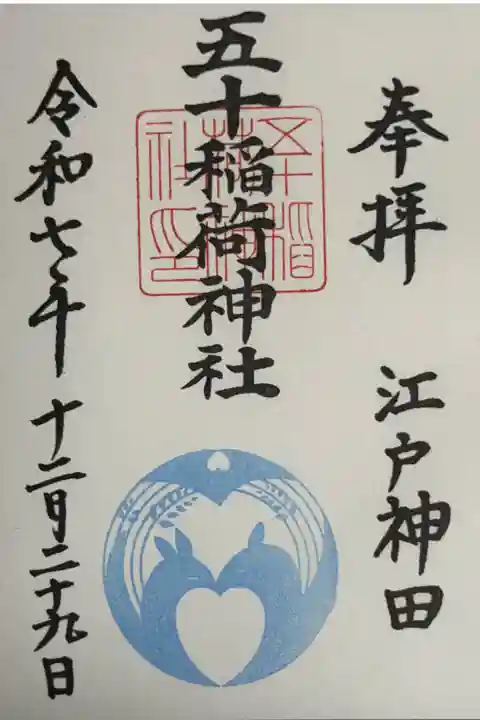 奉拝 江戸神田
五十稲荷神社
五十稲
荷神
社印
令和七年十二月二十九日